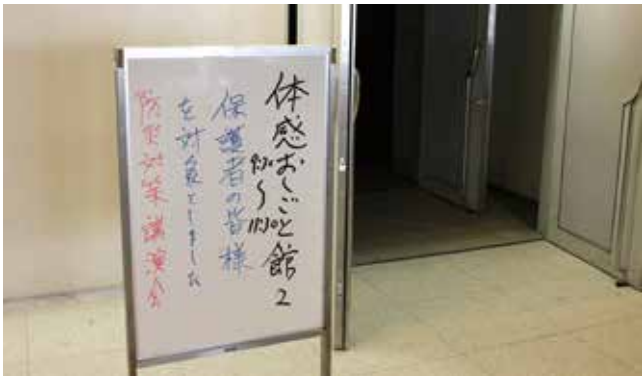 体感おしごと館2
9:30〜11:30
保護者の皆様
を対象としました
防犯対策講演会